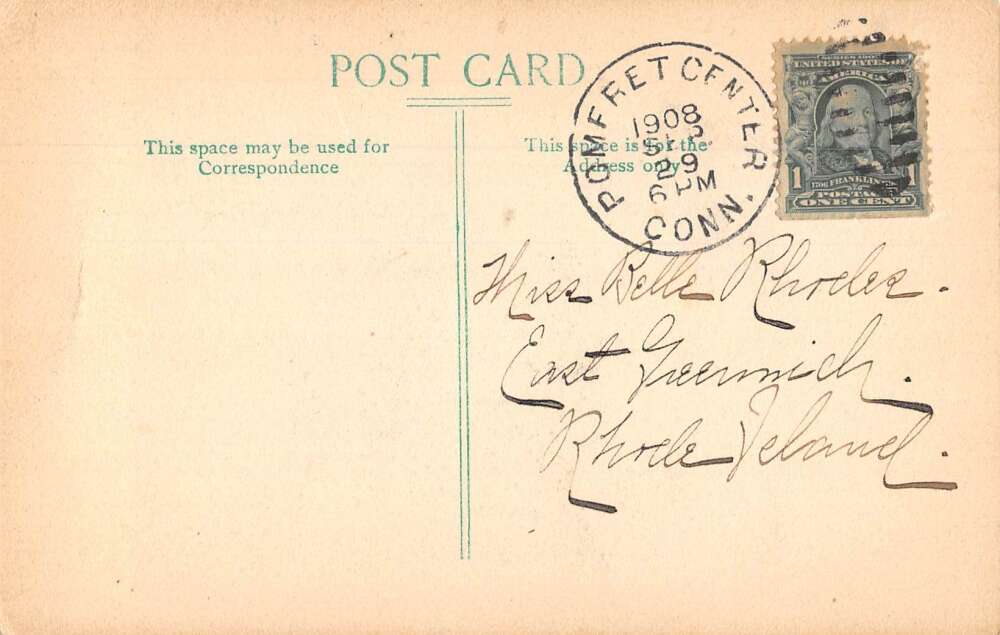 POST CARD
This space may be used for
Correspondence
This space is for the
Address only
POMFRET CENTER
1908
SEP
29
6 PM
CONN.
SERIES 1902
UNITED STATES OF
AMERICA
1706 FRANKLIN 1790
1
POSTAGE
ONE CENT
Miss Belle Rhodes.
East Greenwich.
Rhode Island.